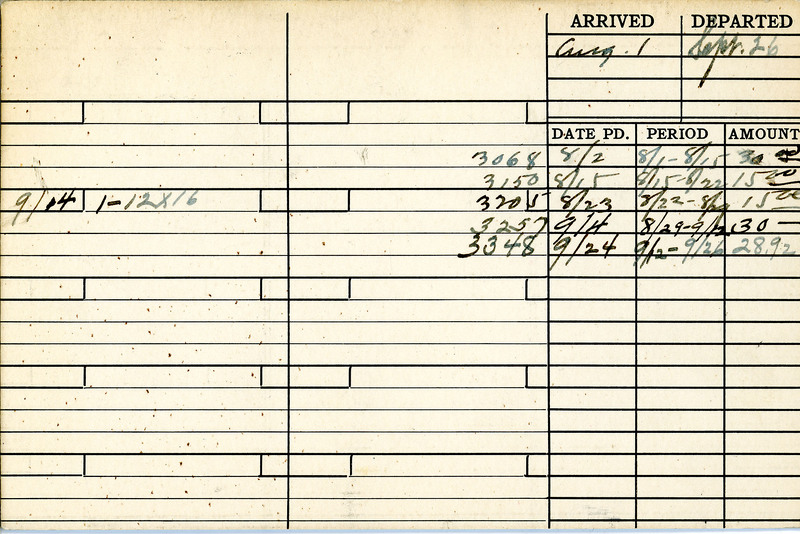 ARRIVED DEPARTED
Aug. 1 Sept. 26
DATE PD. PERIOD AMOUNT
3068 8/2 8/1-8/15 30 00
3150 8/15 8/15-8/22 15 00
9/04 1-12X16 3205 8/23 8/22-8/29 15 00
3257 9/4 8/29-9/12 30 —
3348 9/24 9/12-9/26 28.92